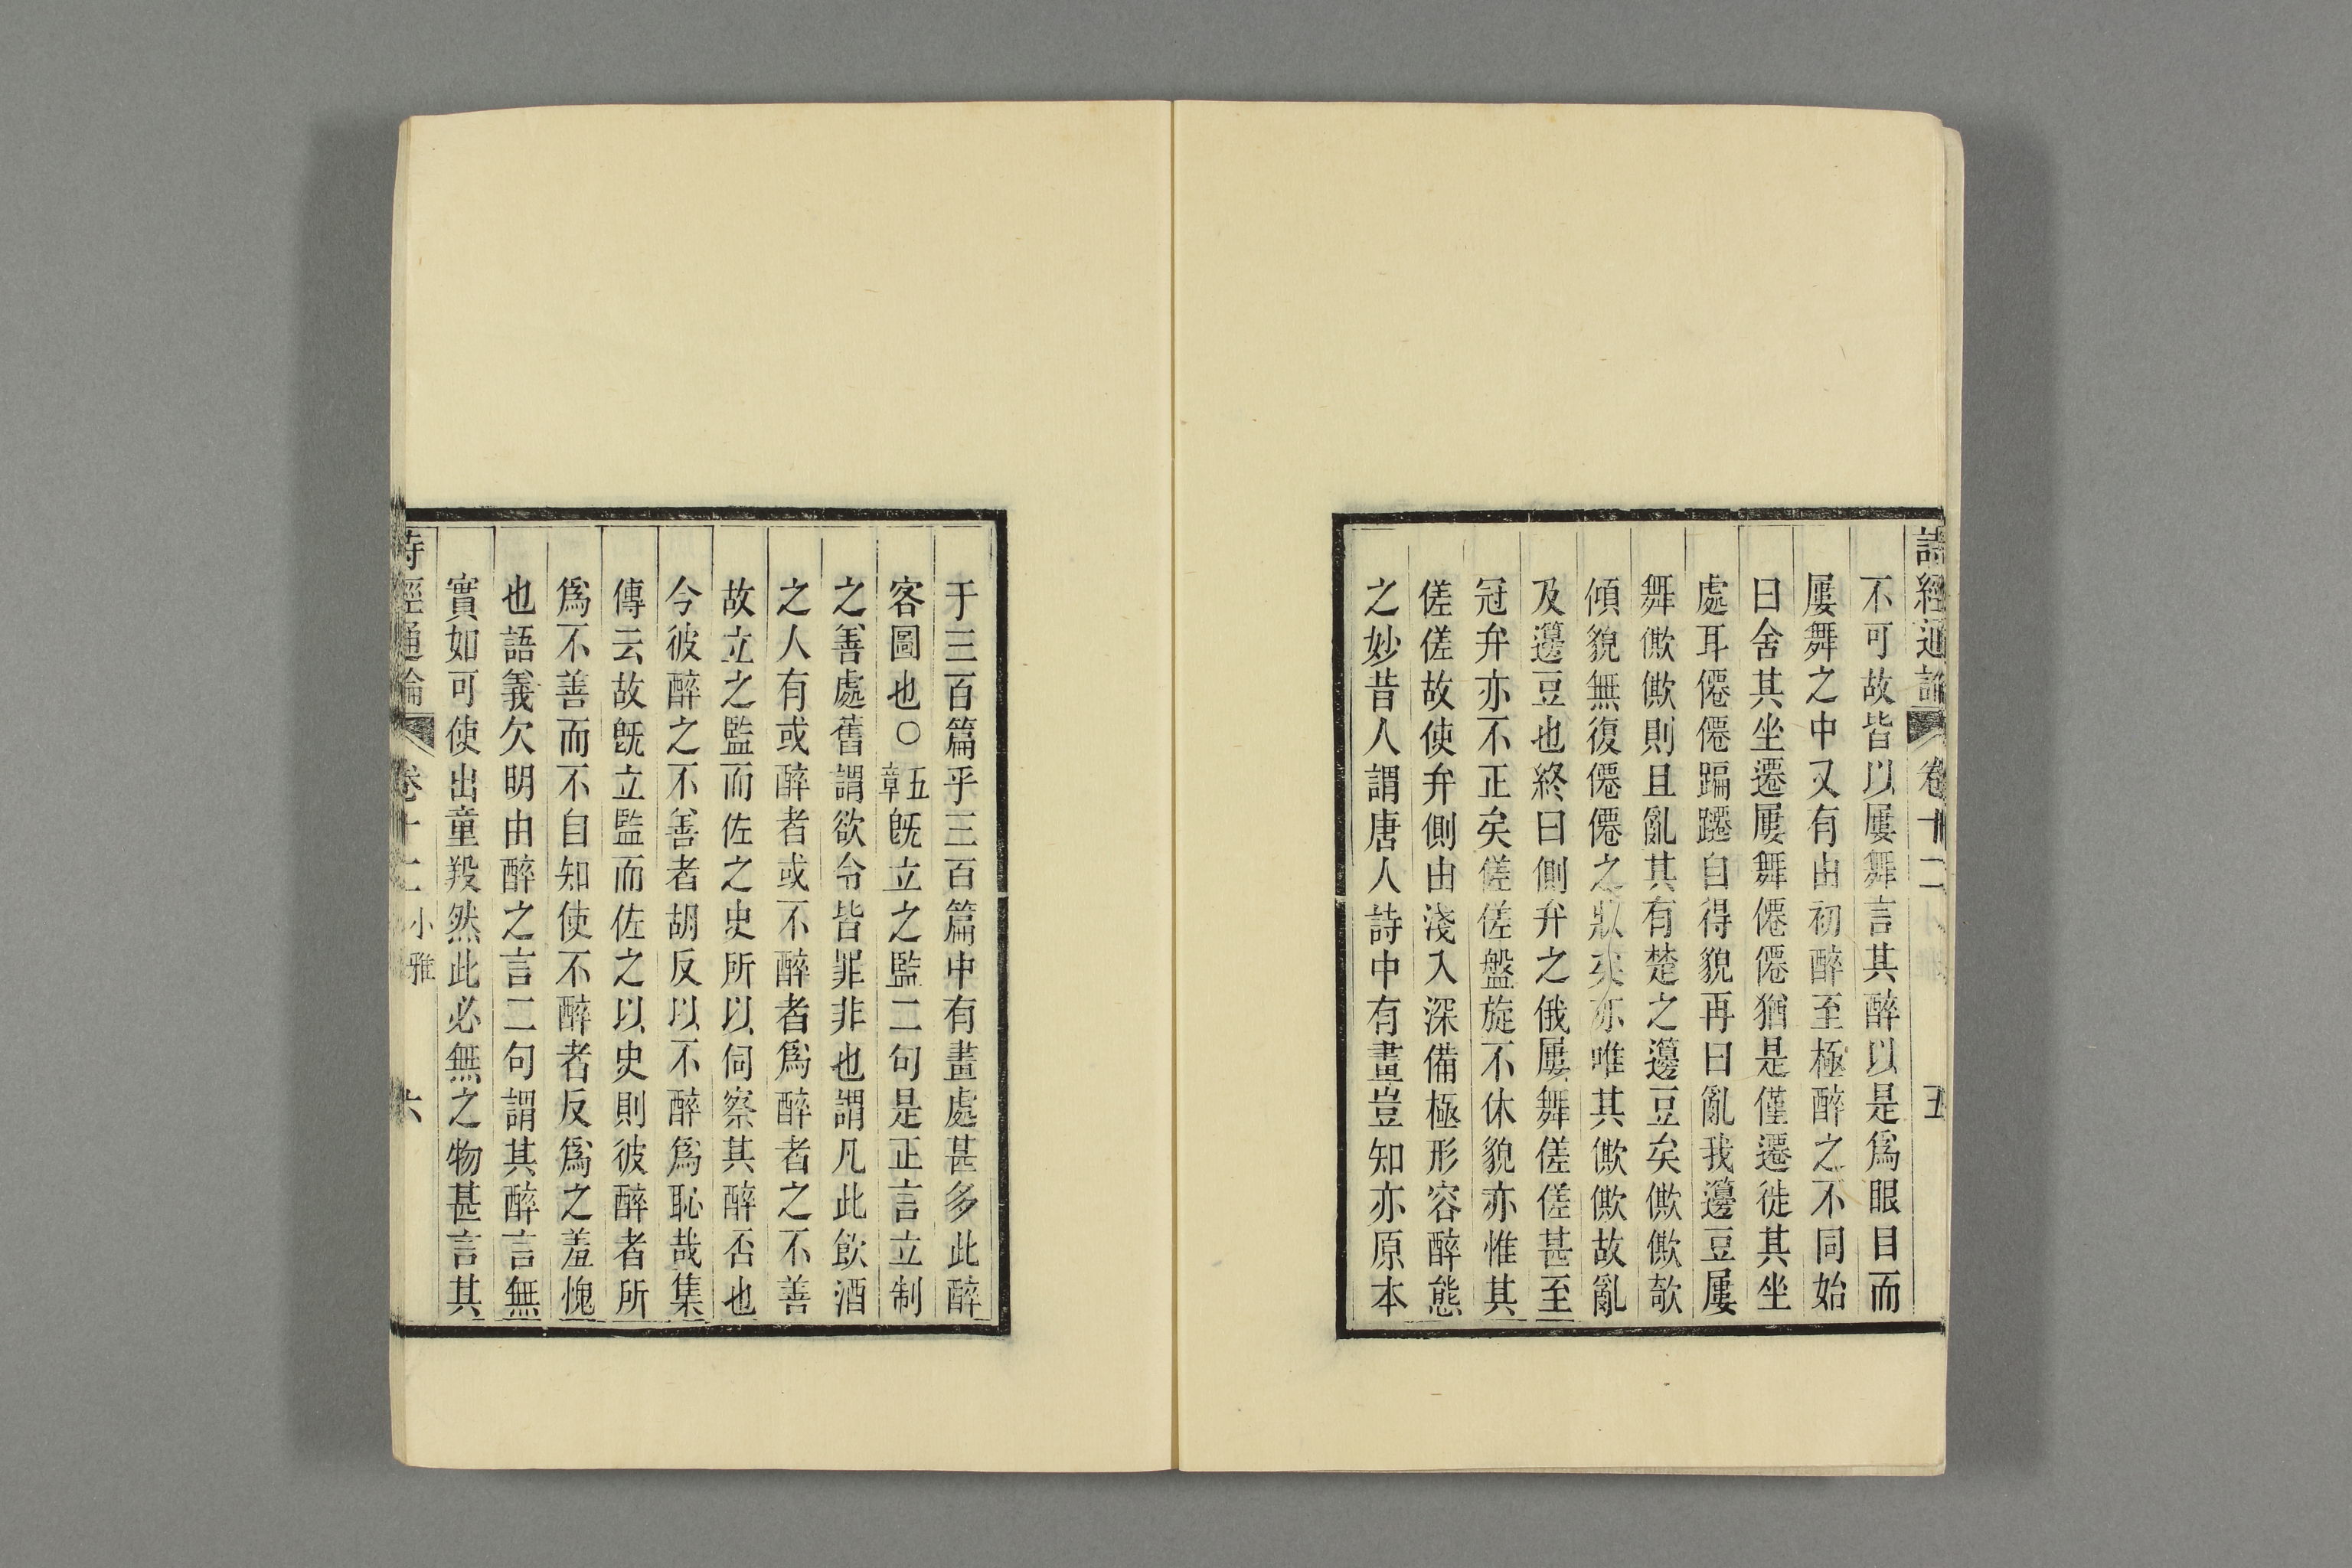 詩經通論 卷十二 五
不可故皆以屢舞言其醉以是爲眼目而
屢舞之中又有由初醉至極醉之不同始
曰舍其坐遷屢舞僊僊猶是僅遷徙其坐
處耳僊僊蹁蹮自得貌再曰亂我籩豆屢
舞僛僛則且亂其有楚之籩豆矣僛僛欹
傾貌無復僊僊之狀矣亦唯其僛僛故亂
及籩豆也終曰側弁之俄屢舞傞傞甚至
冠弁亦不正矣傞傞盤旋不休貌亦惟其
傞傞故使弁側由淺入深備極形容醉態
之妙昔人謂唐人詩中有畫豈知亦原本
于三百篇乎三百篇中有畫處甚多此醉
客圖也○五章既立之監二句是正言立制
之善處舊謂欲令皆罪非也謂凡此飲酒
之人有或醉者或不醉者爲醉者之不善
故立之監而佐之史所以伺察其醉否也
今彼醉之不善者胡反以不醉爲恥哉集
傳云故既立監而佐之以史則彼醉者所
爲不善而不自知使不醉者反爲之羞愧
也語義欠明由醉之言二句謂其醉言無
實如可使出童羖然此必無之物甚言其
詩經通論 卷十二 小雅 六